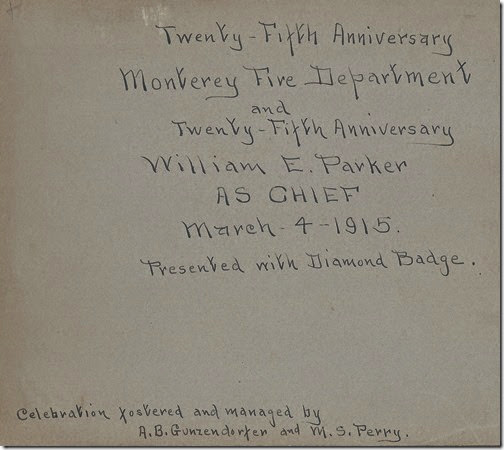 Twenty-Fifth Anniversary
Monterey Fire Department
and
Twenty-Fifth Anniversary
William E. Parker
AS CHIEF
March-4-1915.
Presented with Diamond Badge.
Celebration fostered and managed by
A.B. Gunzendorfer and M.S. Perry.